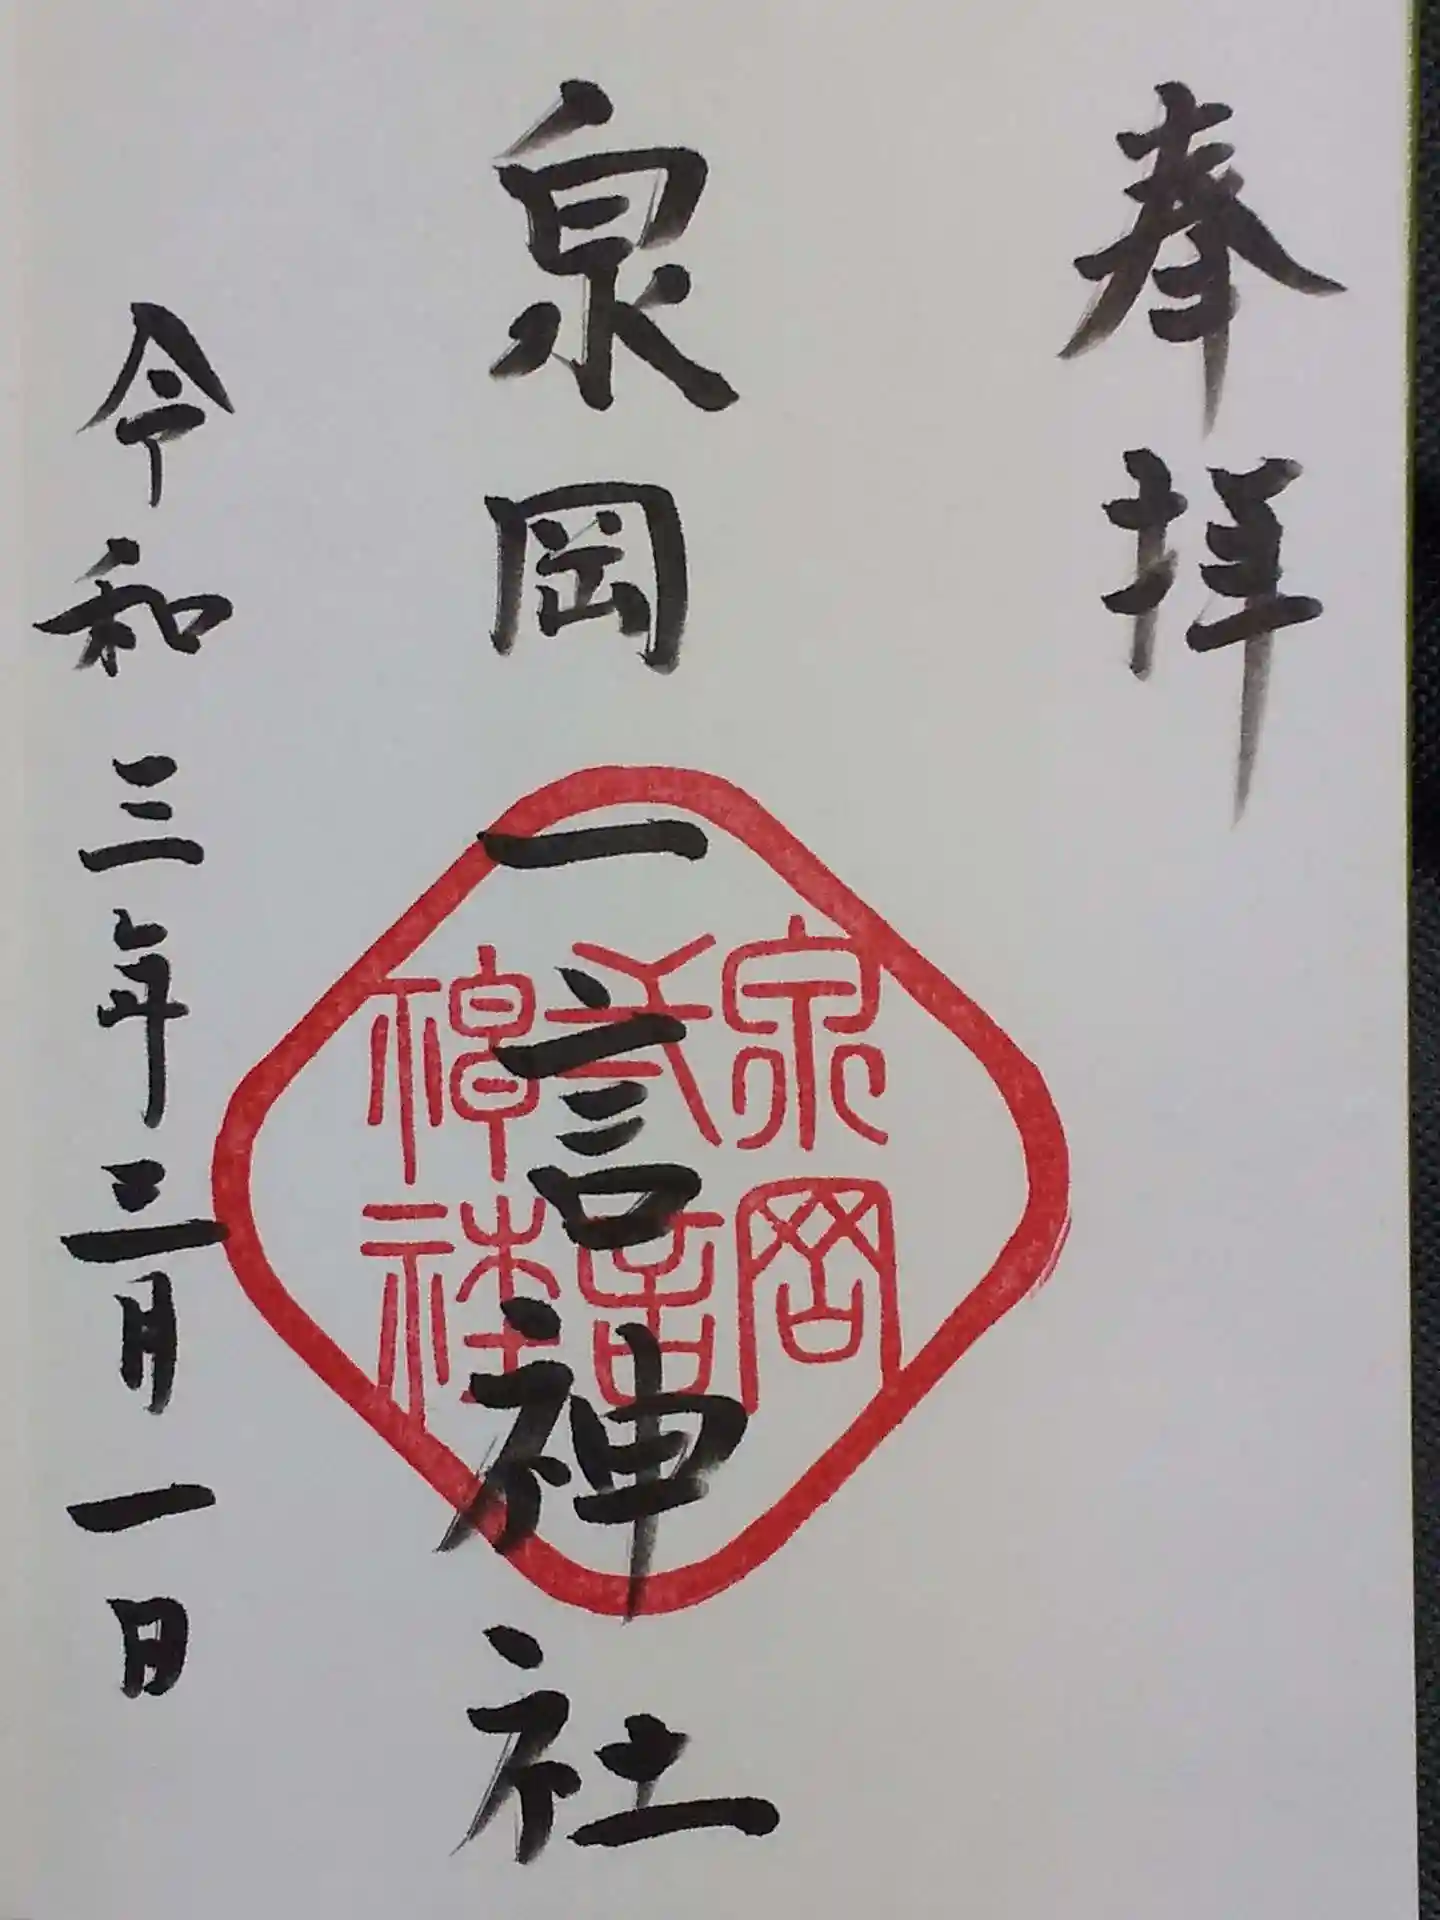 奉拝
泉岡一言神社
泉岡
弌言
神社
令和三年三月一日